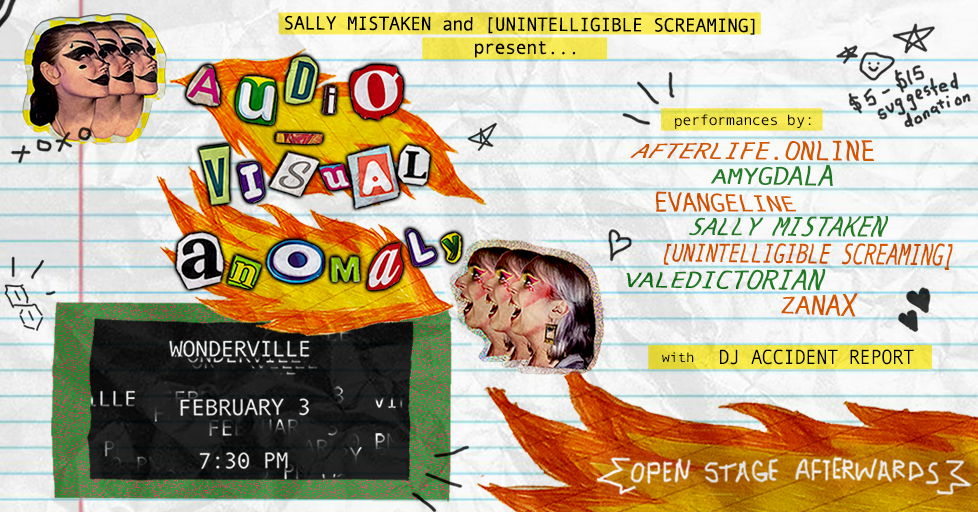 SALLY MISTAKEN and [UNINTELLIGIBLE SCREAMING]
present...
AUDiO
VISuAL
anOMaLy
xoxo
$5-$15
suggested
donation
performances by:
AFTERLIFE.ONLINE
AMYGDALA
EVANGELINE
SALLY MISTAKEN
[UNINTELLIGIBLE SCREAMING]
VALEDICTORIAN
ZANAX
with DJ ACCIDENT REPORT
WONDERVILLE
FEBRUARY 3
7:30 PM
OPEN STAGE AFTERWARDS